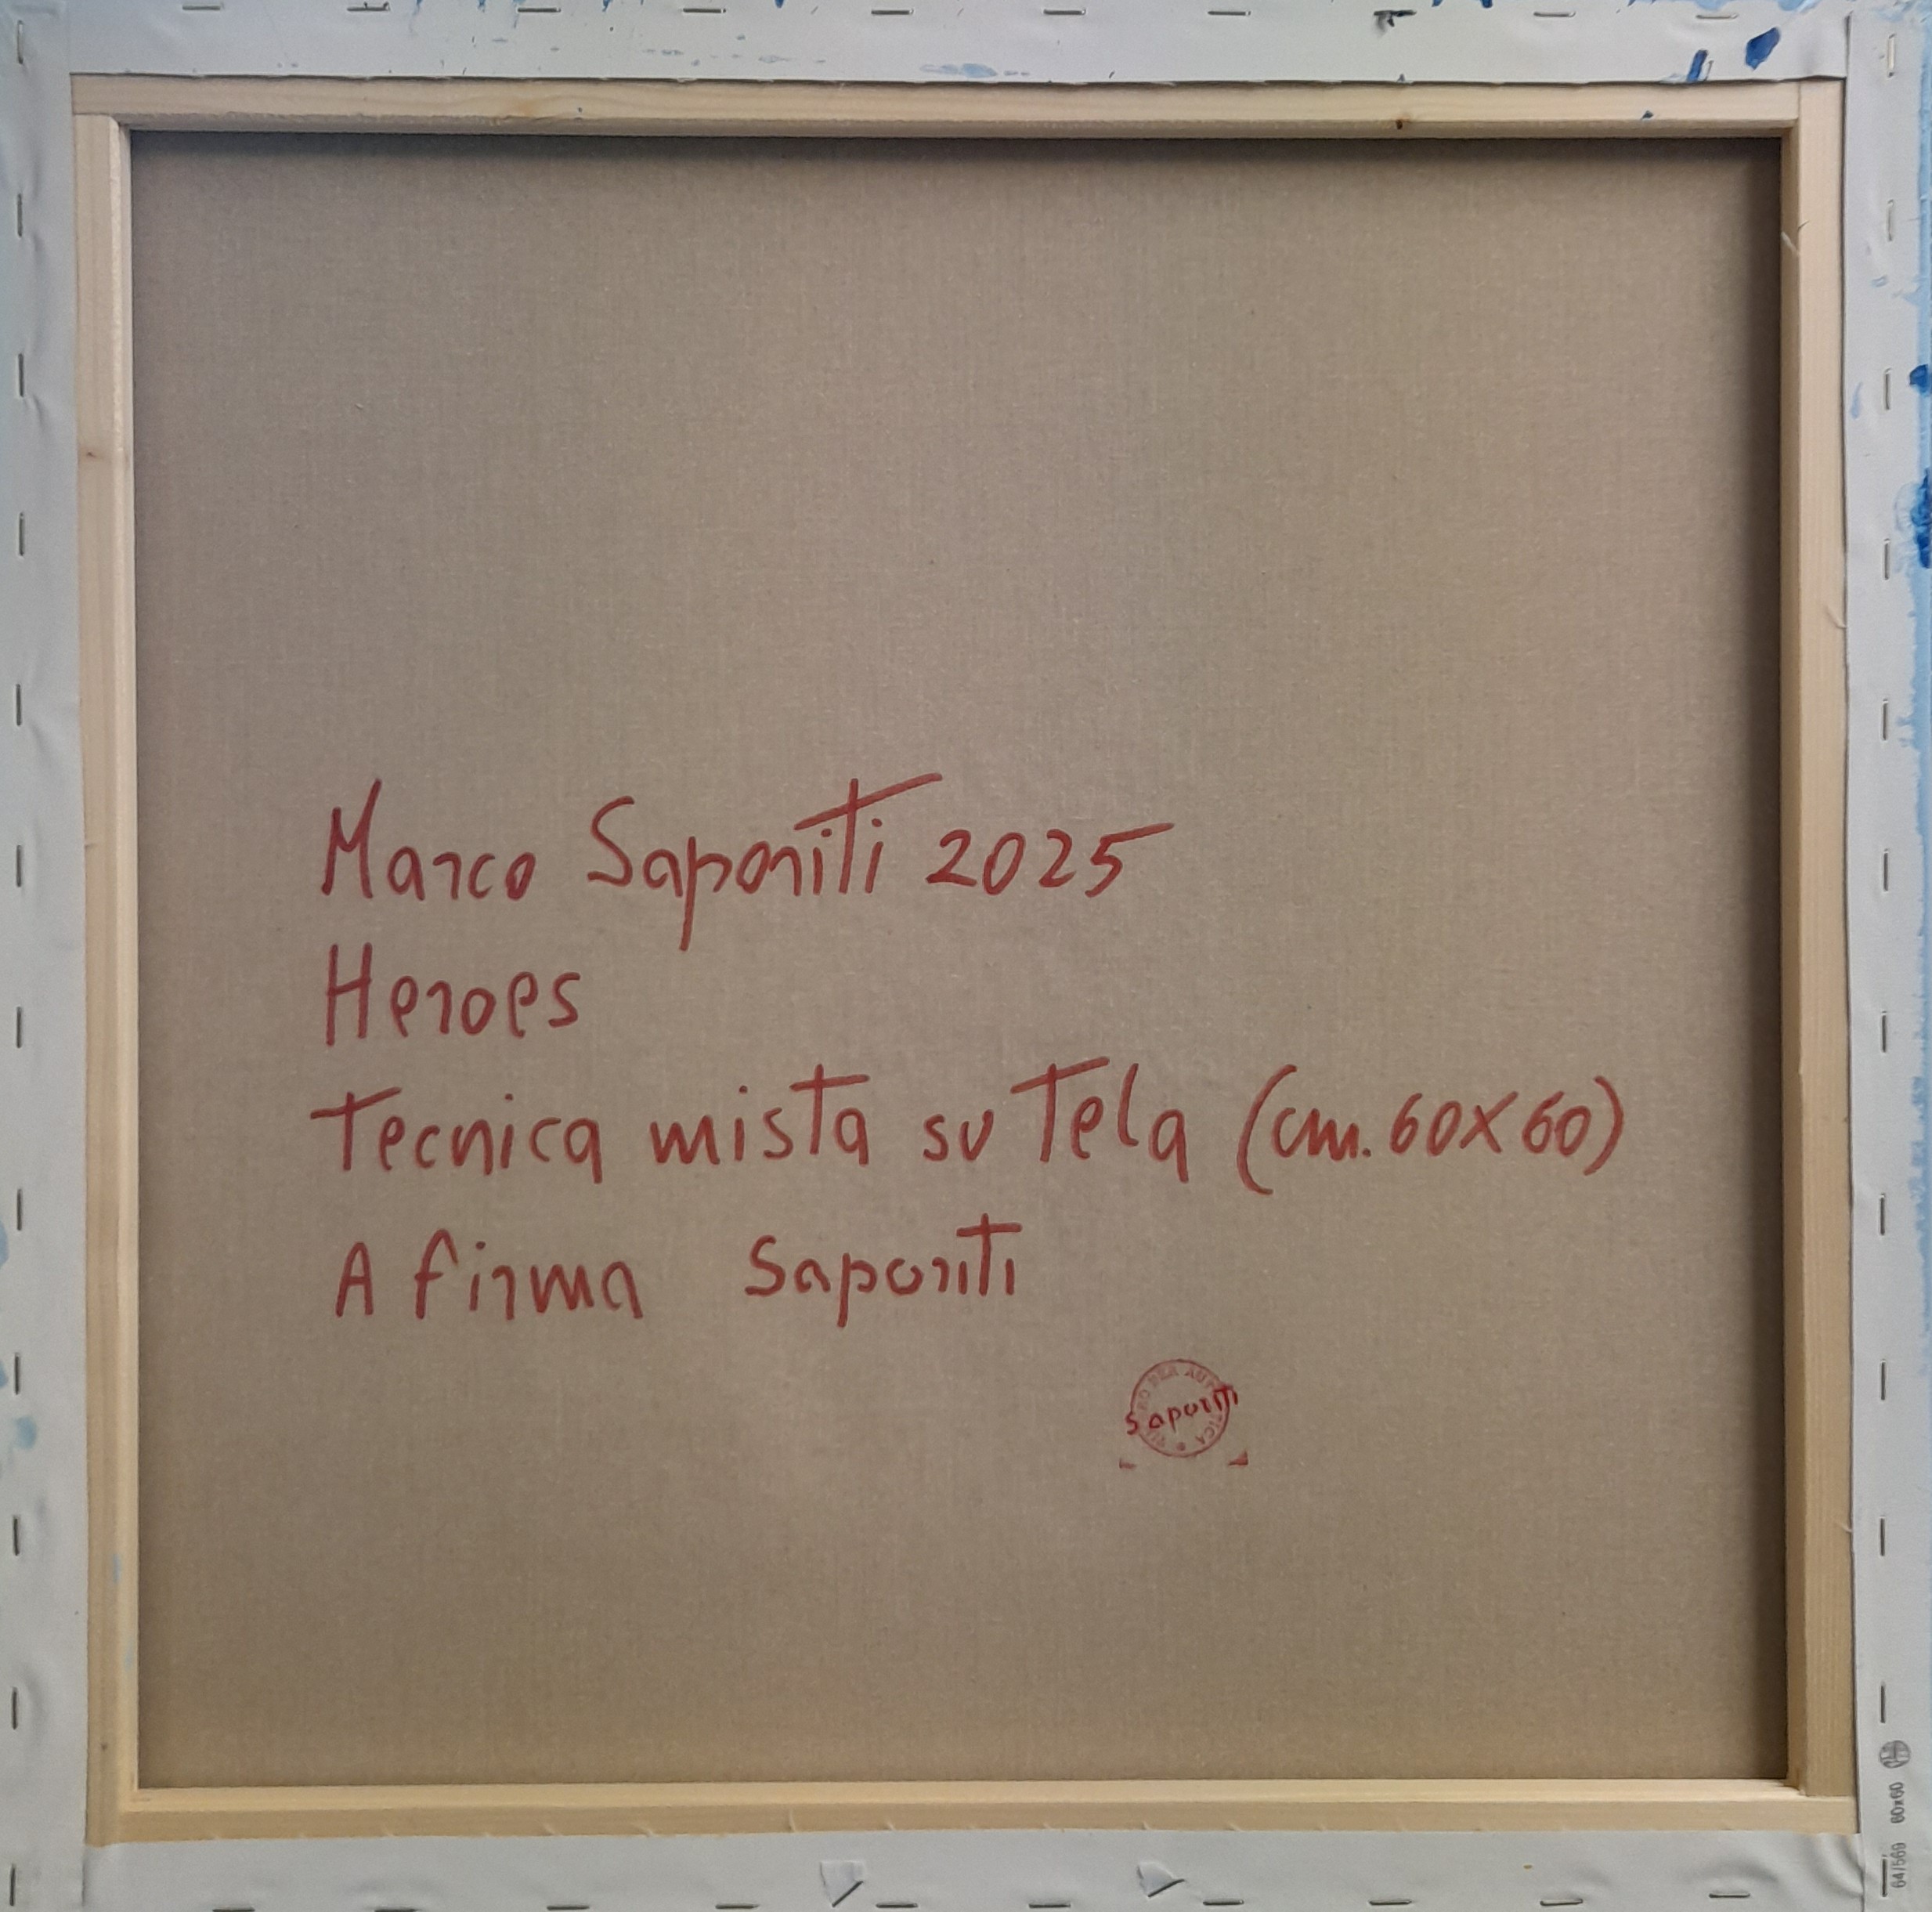 Marco Saporiti 2025
Heroes
Tecnica mista su tela (cm. 60x60)
A firma Saporiti
Saporiti
64/569 60x60